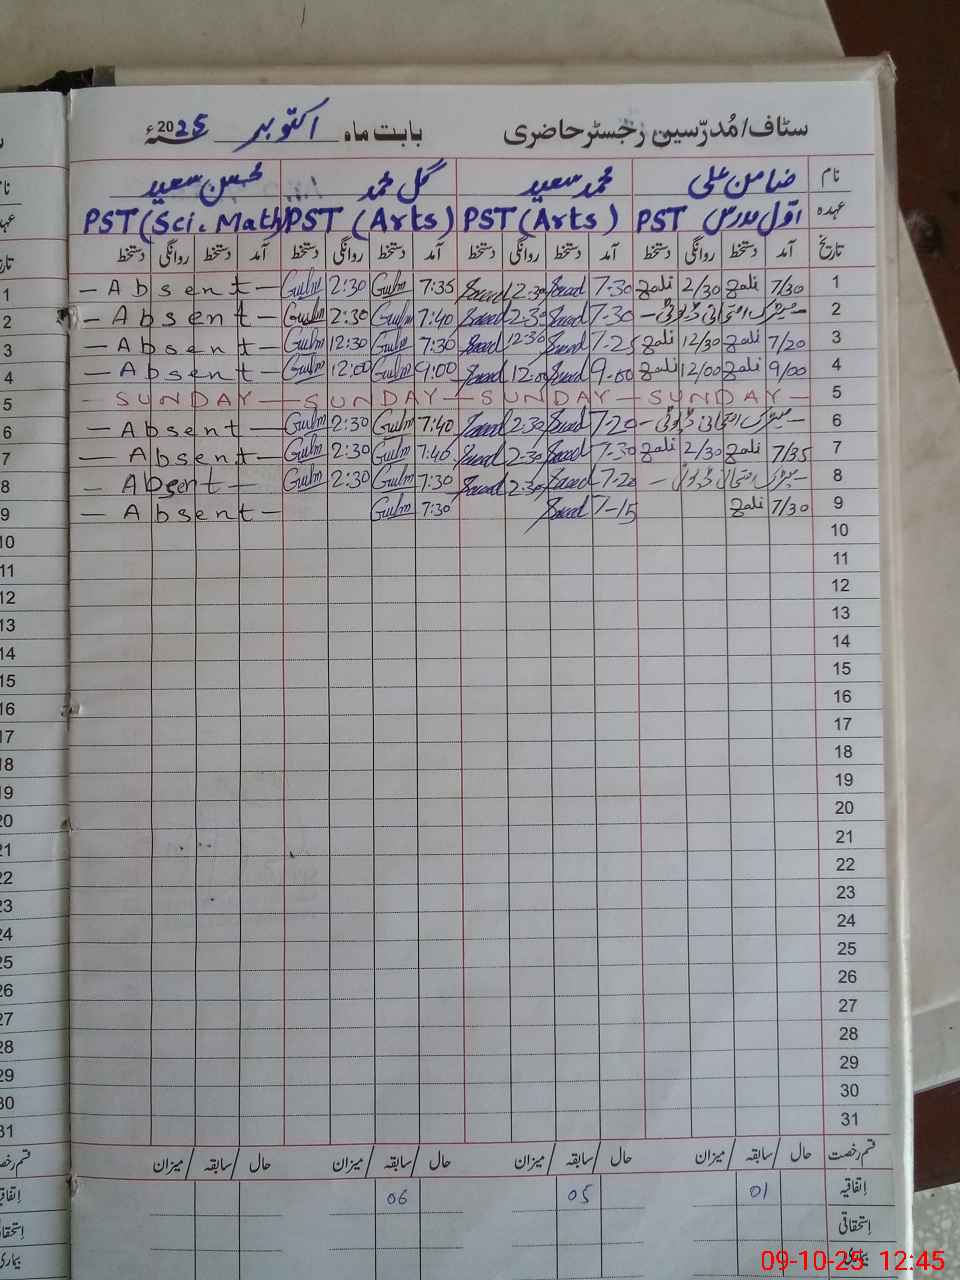 سٹاف/مُدرّسین رجسٹر حاضری بابت ماہ اکتوبر 2025ء
نام ضامن علی محمد سعید گل محمد محسن سعید
عہدہ اوّل مدرس PST PST (Arts) PST (Arts) PST (Sci. Math)
تاریخ آمد دستخط روانگی دستخط آمد دستخط روانگی دستخط آمد دستخط روانگی دستخط آمد دستخط روانگی دستخط
1 7/30 Zali 2/30 Zali 7-30 Saeed 2:30 Saeed 7:35 Gulm 2:30 Gulm — Absent —
2 — میٹرک امتحانی ڈیوٹی — 7-30 Saeed 2-30 Saeed 7:40 Gulm 2:30 Gulm — Absent —
3 7/20 Zali 12/30 Zali 7-25 Saeed 12-30 Saeed 7:30 Gulm 12:30 Gulm — Absent —
4 9/00 Zali 12/00 Zali 9-00 Saeed 12:00 Saeed 9:00 Gulm 12:00 Gulm — Absent —
5 — SUNDAY — SUNDAY — SUNDAY — SUNDAY —
6 — میٹرک امتحانی ڈیوٹی — 7-20 Saeed 2-30 Saeed 7:40 Gulm 2:30 Gulm — Absent —
7 7/35 Zali 2/30 Zali 7-30 Saeed 2-30 Saeed 7:46 Gulm 2:30 Gulm — Absent —
8 — میٹرک امتحانی ڈیوٹی — 7-20 Saeed 2-30 Saeed 7:30 Gulm 2:30 Gulm — Absent —
9 7/30 Zali 7-15 Saeed 7:30 Gulm — Absent —
10
11
12
13
14
15
16
17
18
19
20
21
22
23
24
25
26
27
28
29
30
31
قسم رخصت حال / سابقہ / میزان حال / سابقہ / میزان حال / سابقہ / میزان حال / سابقہ / میزان
اِتفاقیہ 01 05 06
اِستحقاقی
بیماری
09-10-25 12:45